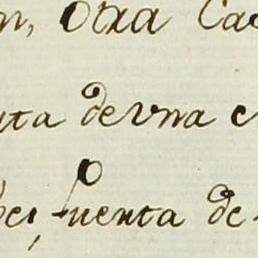 n, Otra Ca
ta de vna c
fuenta de